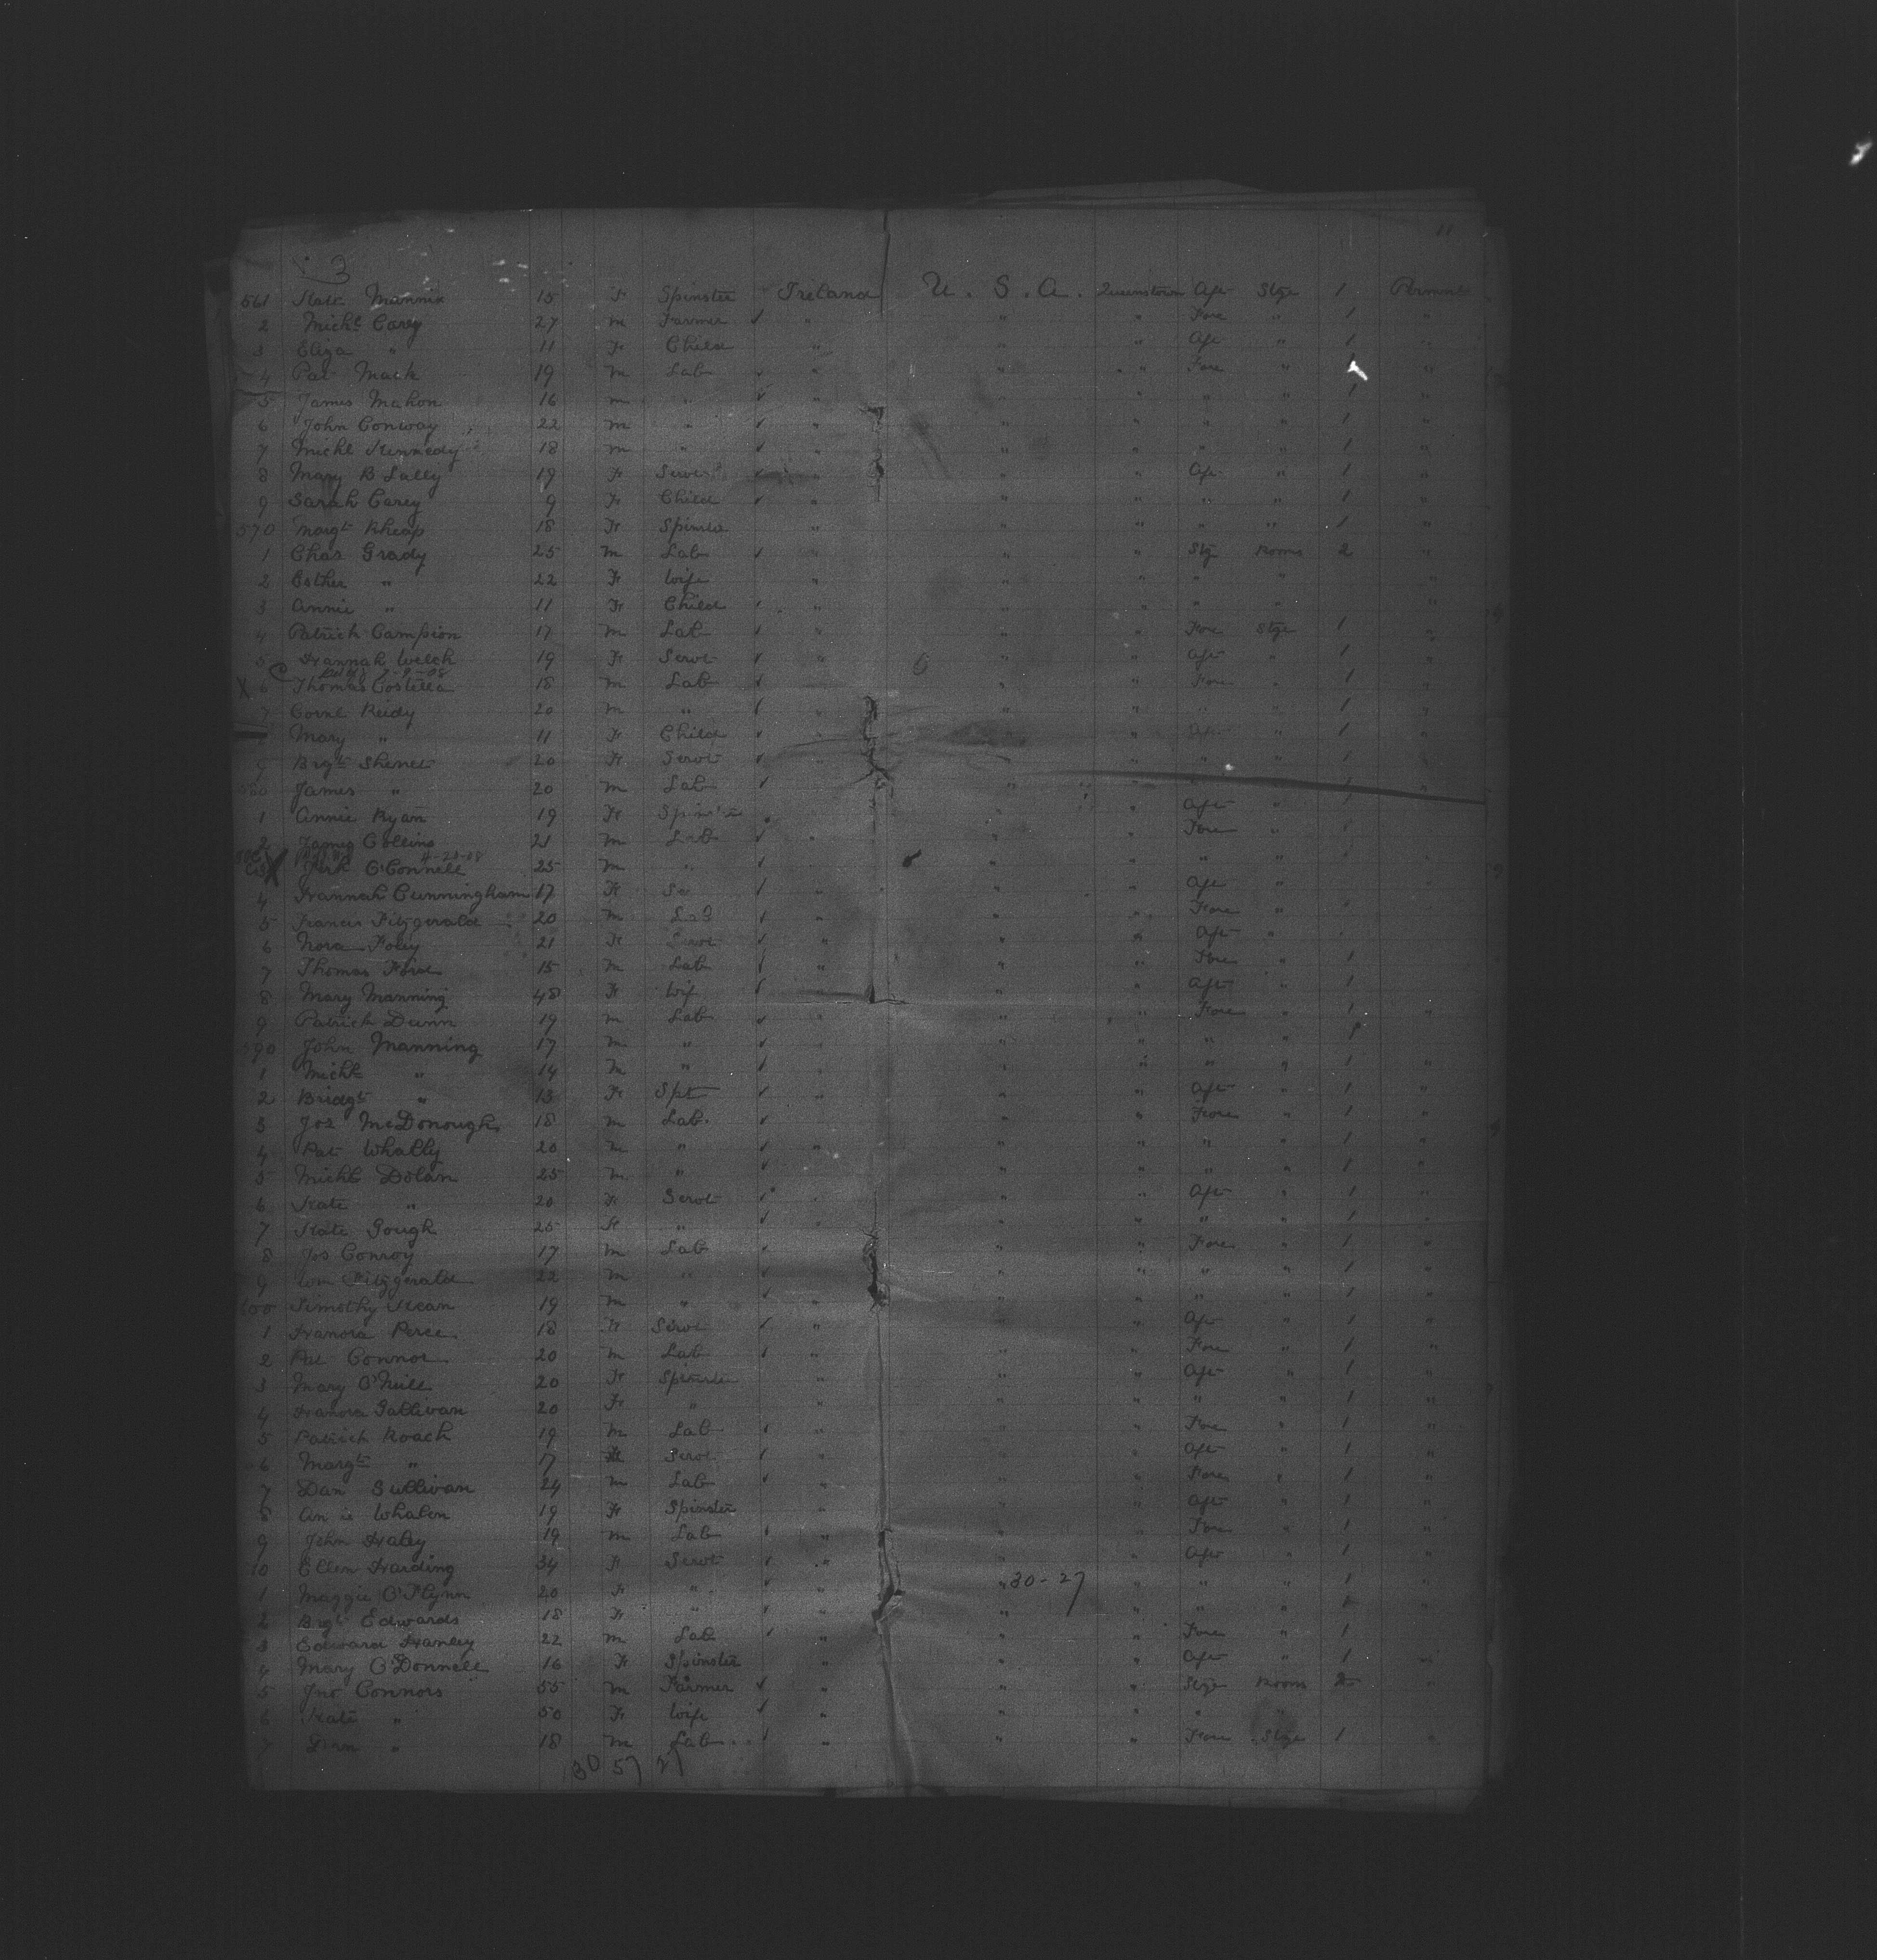 3 11
561 Kate Mannix 15 F Spinster Ireland U. S. A. Queenstown Aft Stge 1 Permnt
2 Michl Carey 27 m Farmer ✓ " " " Fore " 1 "
3 Eliza " 11 F Child " " " Aft " 1 "
4 Pat Mack 19 m Lab ✓ " " " Fore " 1 "
5 James Mahon 16 m " ✓ " " " " " 1 "
6 John Conway 22 m " ✓ " " " " " 1 "
7 Michl Kennedy 18 m " ✓ " " " " " 1 "
8 Mary B Lally 19 F Servt ✓ " " " Aft " 1 "
9 Sarah Carey 9 F Child ✓ " " " " " 1 "
570 Margt Kheap 18 F Spinster " " " " " 1 "
1 Chas Grady 25 m Lab ✓ " " " Stg Rooms 2 "
2 Esther " 22 F Wife " " " " " "
3 Annie " 11 F Child ✓ " " " " "
4 Patrick Campion 17 m Lab ✓ " " " Fore Stge 1 "
5 Hannah Welch 19 F Servt ✓ " " " Aft " 1 "
X 6 Thomas Costella 18 m Lab ✓ " " Fore " 1 "
7 Cornl Reidy 20 m " ✓ " " " " " 1 "
Mary " 11 F Child ✓ " " " Aft " 1 "
9 Brgt Shenet 20 F Servt ✓ " " " " " 1 "
580 James " 20 m Lab ✓ " " " " 1 "
1 Annie Ryan 19 F Spinster " " " Aft "
2 James Collins 21 m Lab ✓ " " " Fore "
4-21-08
X O'Connell 25 m " ✓ " " " "
4 Hannah Cunningham 17 F ✓ " " " Aft "
5 Francis Fitzgerald 20 m Lab ✓ " " " Fore "
6 Nora Foley 21 F Servt ✓ " " " Aft "
7 Thomas Ford 15 m Lab ✓ " " " Fore " 1
8 Mary Manning 48 F Wif ✓ " " " Aft " 1
9 Patrick Dunn 19 m Lab ✓ " " " Fore " 1 "
590 John Manning 17 m " ✓ " " " " " 1
1 Michl " 14 m " ✓ " " " " " 1 "
2 Bridgt " 13 F Spt ✓ " " " Aft " 1 "
3 Jos McDonough 18 m Lab. ✓ " " " Fore " 1 "
4 Pat Whally 20 m " ✓ " " " " " 1 "
5 Michl Dolan 25 m " ✓ " " " " 1 "
6 Kate " 20 F Servt ✓ " " " Aft " 1 "
7 Kate Gough 25 F " ✓ " " " " " 1 "
8 Jos Conroy 17 m Lab ✓ " " Fore " 1 "
9 Wm Fitzgerald 22 m " ✓ " " " " 1 "
600 Timothy Kean 19 m " ✓ " " " " " 1 "
1 Hanora Perce 18 F Servt ✓ " " " Aft " 1 "
2 Pat Connor 20 m Lab ✓ " " " Fore " 1 "
3 Mary O'Neill 20 F Spinster " " " Aft " 1 "
4 Hanora Sallivan 20 F " " " " " " 1 "
5 Patrick Roach 19 m Lab ✓ " " " Fore " 1 "
6 Margt " 17 F Servt ✓ " " " Aft " 1 "
7 Dan Sullivan 24 m Lab ✓ " " " Fore " 1 "
8 Annie Whalen 19 F Spinster " " " Aft " 1 "
9 John Haley 19 m Lab ✓ " " " Fore " 1 "
10 Ellen Harding 34 F Servt ✓ " " " Aft " 1 "
1 Maggie O'Flynn 20 F " ✓ " " 30-27 " " " 1 "
2 Brgt Edwards 18 F " ✓ " " " " " 1 "
3 Edward Hanley 22 m Lab ✓ " " " Fore " 1
4 Mary O'Donnell 16 F Spinster " " " Aft " 1 "
5 Jno Connors 55 m Farmer ✓ " " " Stge Rooms 2 "
6 Kate " 50 F Wife ✓ " " " " "
7 " 18 m Lab ✓ " " " Fore Stge 1 "
30 57 27